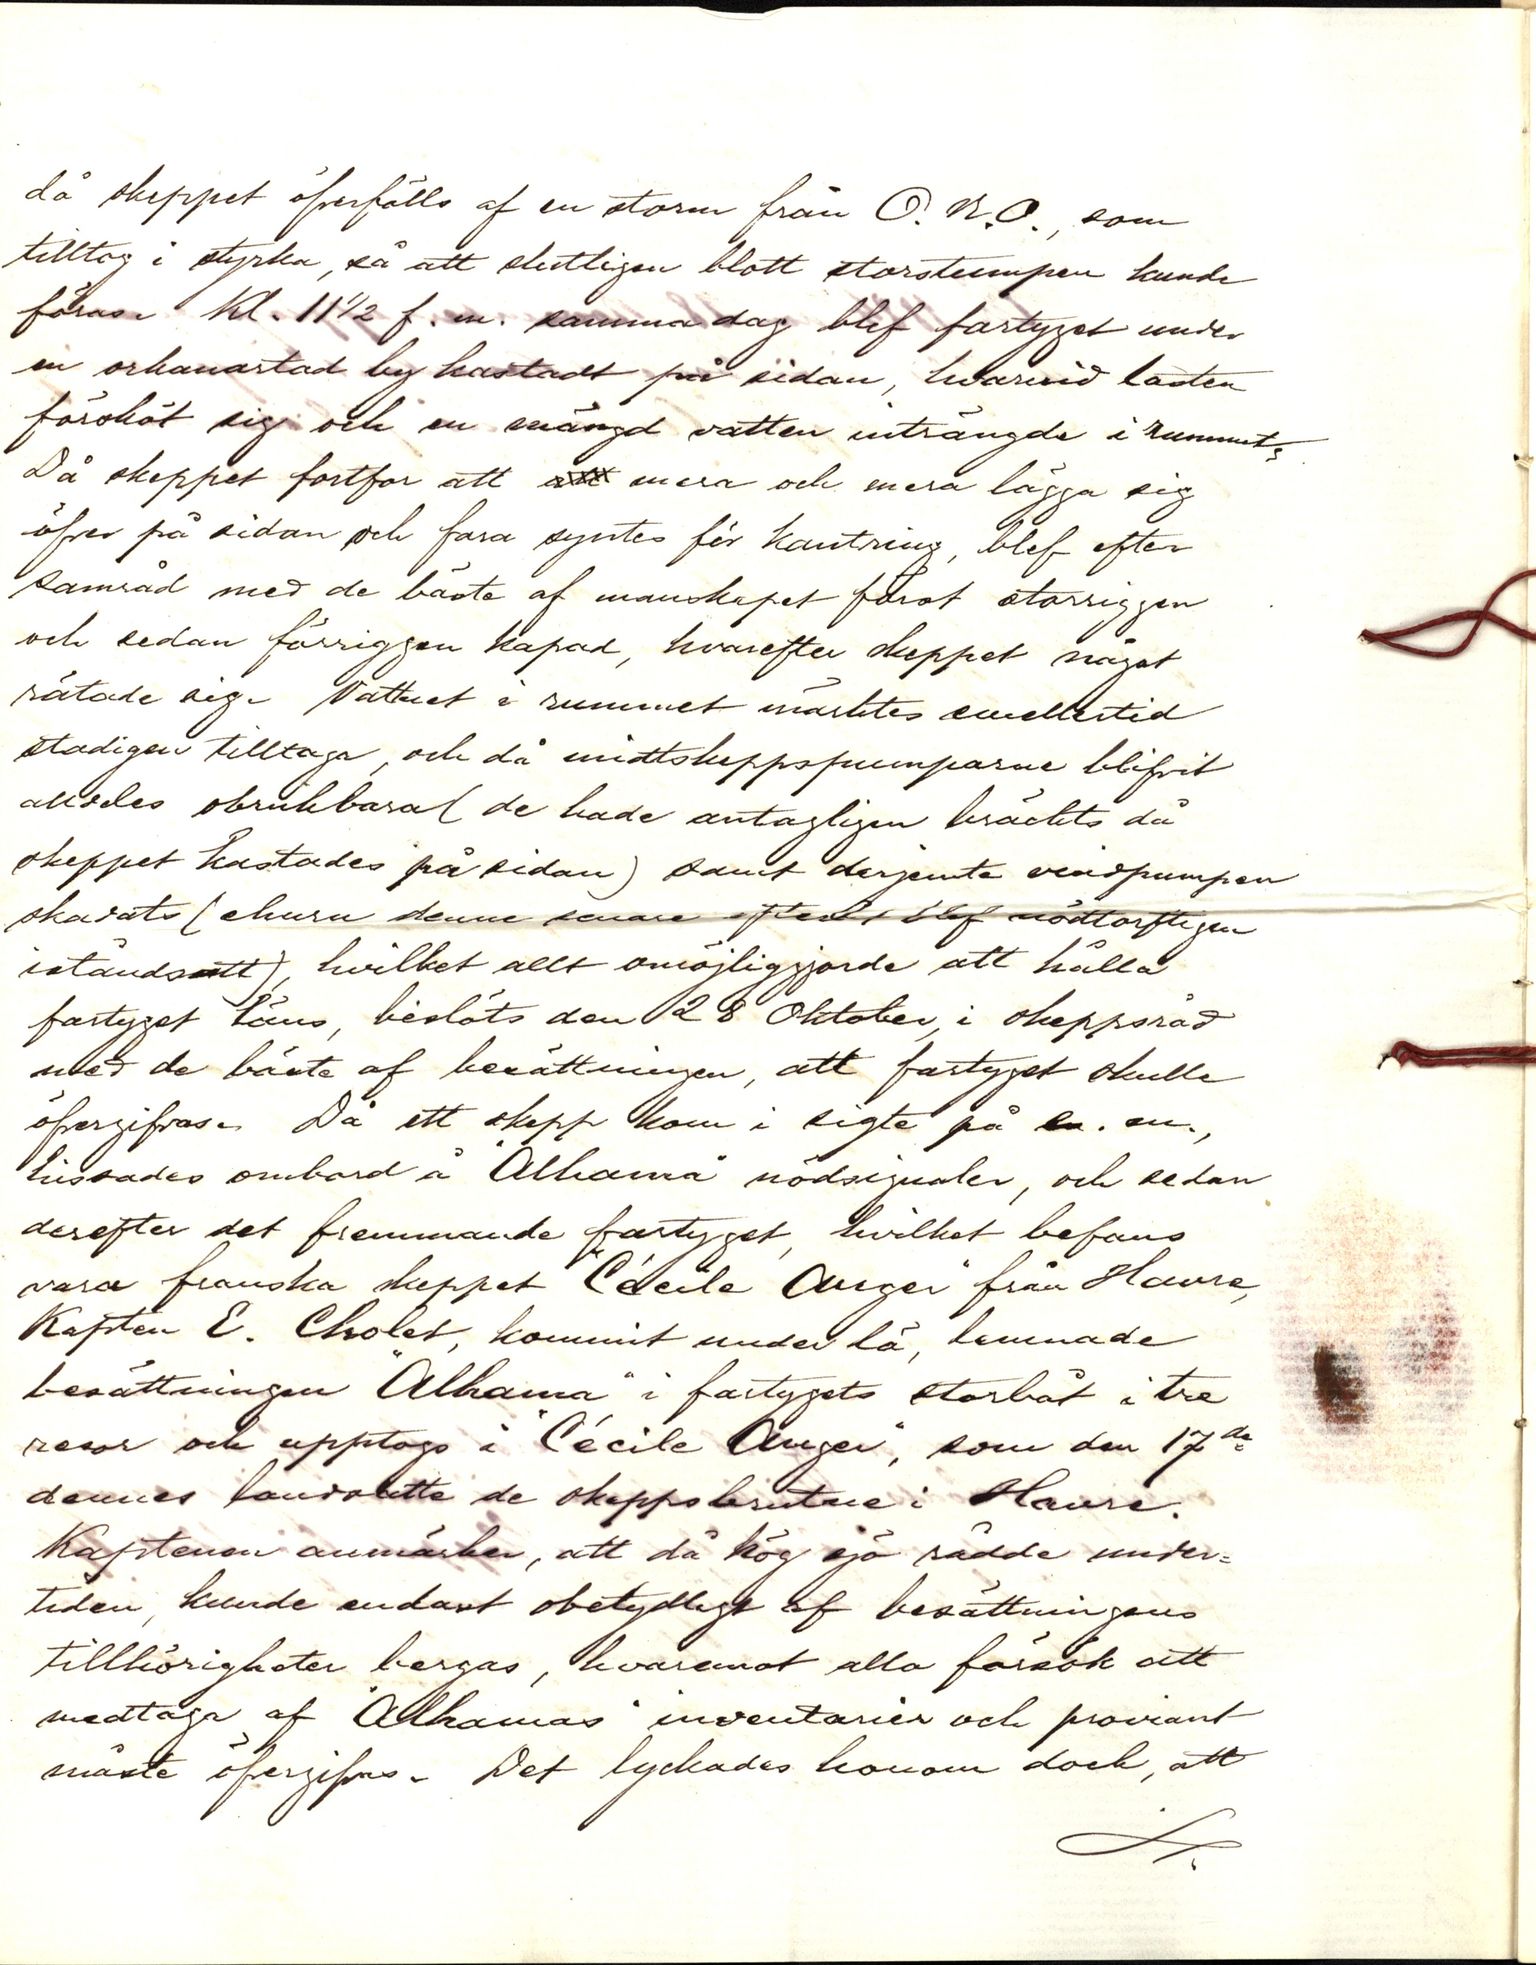 då skeppet öfverfölls af en storm från O.N.O., som
tilltog i styrka, så att slutligen blott storstumpen kunde
föras. Kl. 11 1/2 f.m. samma dag blef fartyget under
en orkanartad by kastadt på sidan, hvarvid lasten
försköt sig och en mängd vatten inträngde i rummet.
Då skeppet fortfor att mera och mera lägga sig
öfver på sidan och fara syntes för kantring, blef efter
samråd med de bäste af manskapet först storriggen
och sedan förriggen kapad, hvarefter skeppet något
rätade sig. Vattnet i rummet märktes emellertid
stadigen tilltaga, och då midtskeppspumparne blifvit
alldeles obrukbara (de hade antagligen bräckts då
skeppet kastades på sidan) samt derjemte vindpumpen
skadats (ehuru denne senare efteråt blef nödtorftigen
iståndsatt), hvilket allt omöjliggjorde att hålla
fartyget läns, beslöts den 28 Oktober, i skeppsråd
med de bäste af besättningen, att fartyget skulle
öfvergifvas. Då ett skepp kom i sigte på e.m.,
hissades ombord å "Alhama" nödsignaler, och sedan
derefter det fremmande fartyget, hvilket befans
vara franska skeppet "Cécile Auger" från Havre,
Kapten E. Cholet, kommit under lä, lemnade
besättningen "Alhama" i fartygets storbåt i tre
resor och upptogs i "Cécile Auger", som den 17de
dennes landsatte de skeppsbrutne i Havre.
Kaptenen anmärker, att då hög sjö rådde under-
tiden, kunde endast obetydligt af besättningens
tillhörigheter bergas, hvaremot alla försök att
medtaga af "Alhamas" inventarier och proviant
måste öfvergifvas. Det lyckades honom dock, att